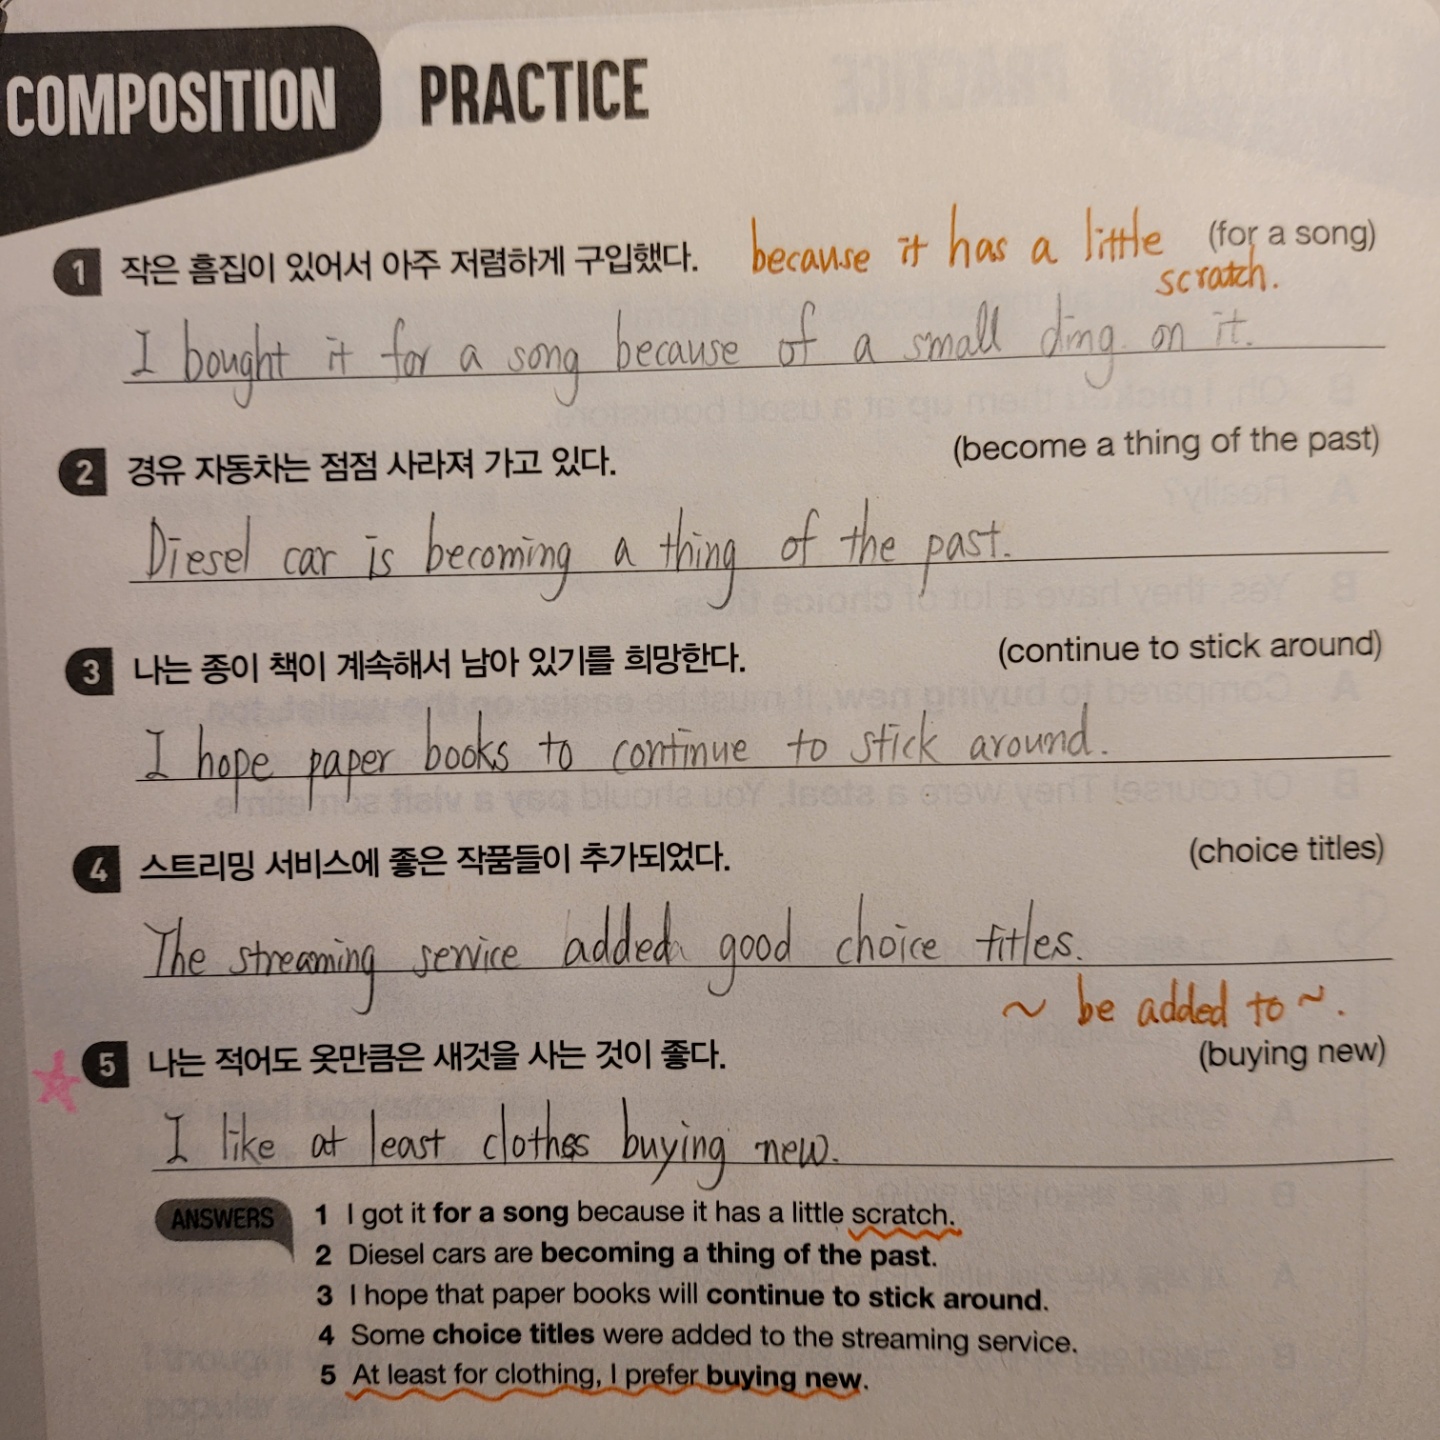 COMPOSITION PRACTICE
1 작은 흠집이 있어서 아주 저렴하게 구입했다. because it has a little (for a song)
scratch.
I bought it for a song because of a small ding on it.
2 경유 자동차는 점점 사라져 가고 있다. (become a thing of the past)
Diesel car is becoming a thing of the past.
3 나는 종이 책이 계속해서 남아 있기를 희망한다. (continue to stick around)
I hope paper books to continue to stick around.
4 스트리밍 서비스에 좋은 작품들이 추가되었다. (choice titles)
The streaming service added good choice titles.
~ be added to ~.
5 나는 적어도 옷만큼은 새것을 사는 것이 좋다. (buying new)
I like at least clothes buying new.
ANSWERS 1 I got it for a song because it has a little scratch.
2 Diesel cars are becoming a thing of the past.
3 I hope that paper books will continue to stick around.
4 Some choice titles were added to the streaming service.
5 At least for clothing, I prefer buying new.